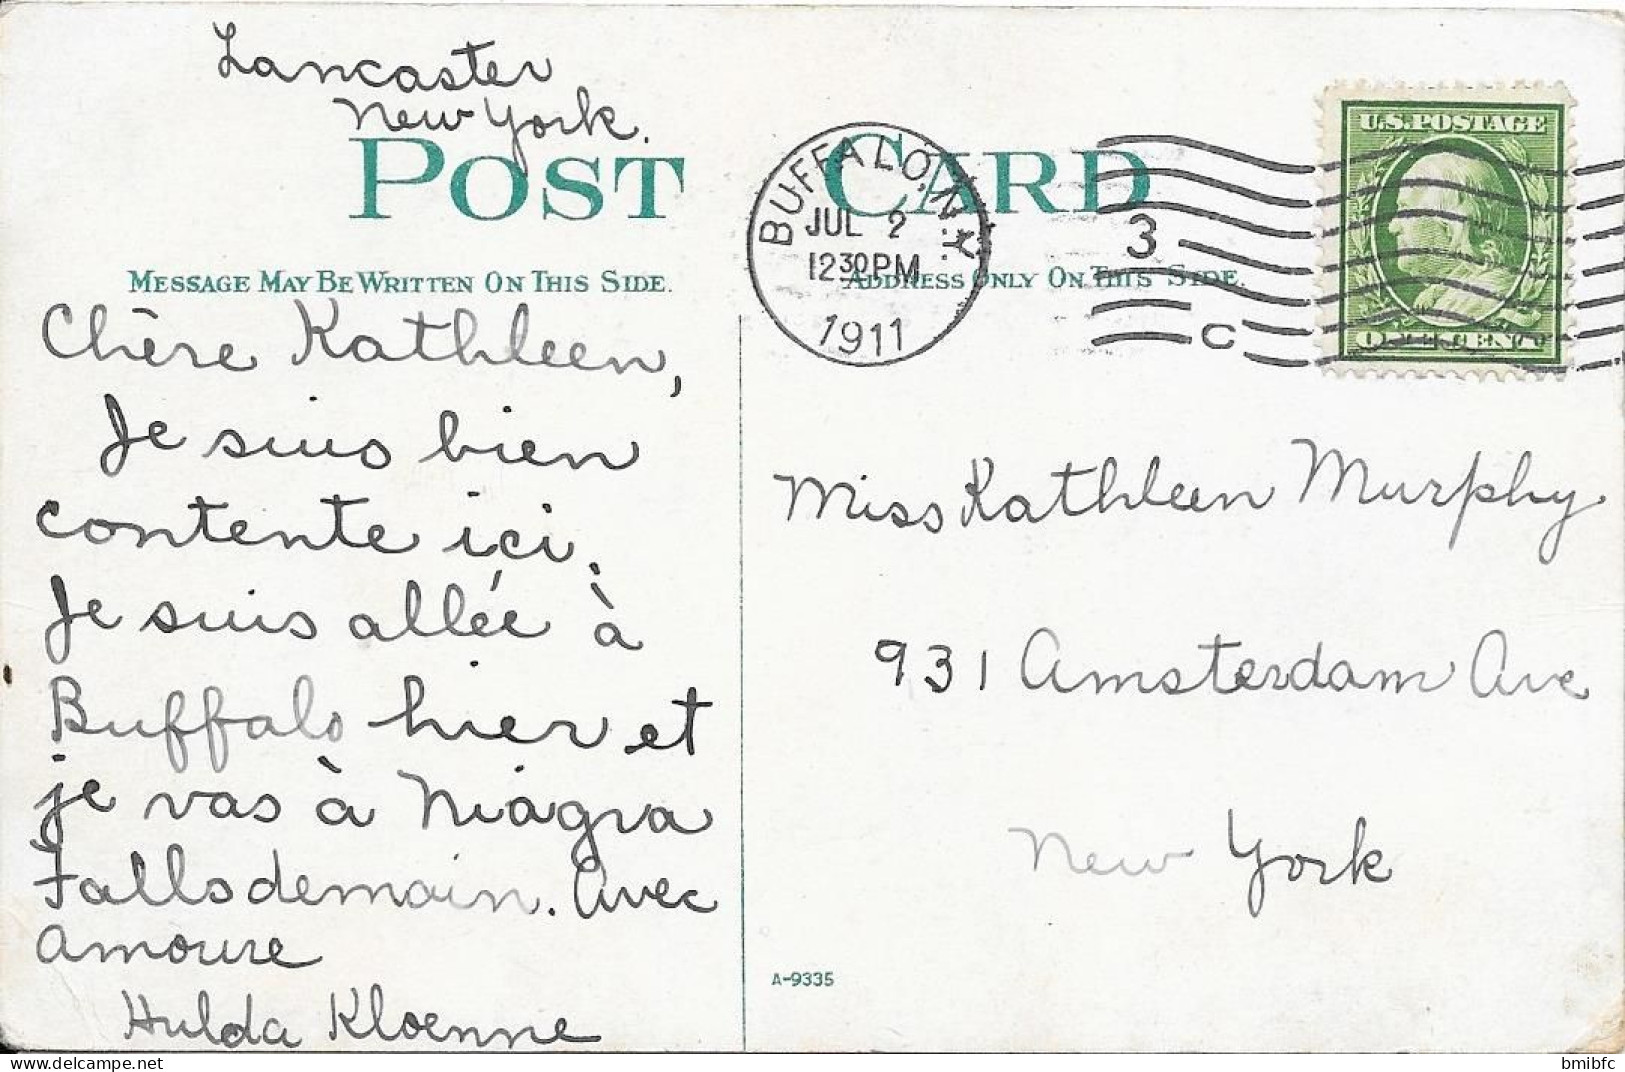 Lancaster
New York.
POST CARD
MESSAGE MAY BE WRITTEN ON THIS SIDE.
ADDRESS ONLY ON THIS SIDE.
BUFFALO, N.Y.
JUL 2
12 30 PM
1911
3
C
U.S. POSTAGE
ONE CENT
Chère Kathleen,
Je suis bien
contente ici.
Je suis allée à
Buffalo hier et
je vas à Niagra
Falls demain. Avec
amoure
Hulda Kloenne
Miss Kathleen Murphy
931 Amsterdam Ave
New York
A-9335
bmibfc